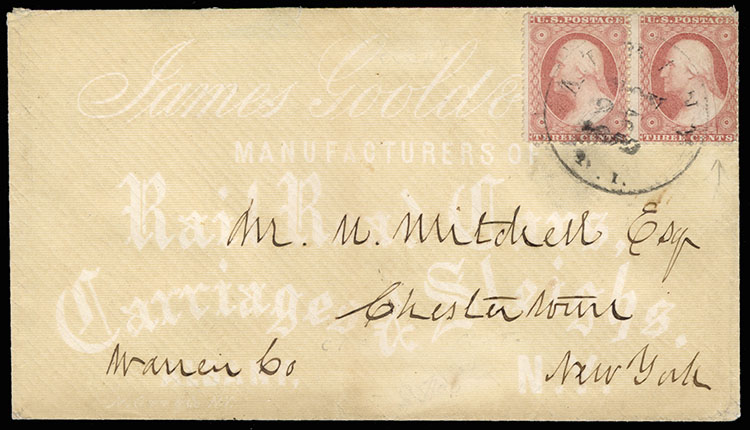 U.S. POSTAGE U.S. POSTAGE
THREE CENTS THREE CENTS
James Goold
MANUFACTURERS OF
Rail Road Cars,
Carriages & Sleighs.
ALBANY, N.Y.
Mr. N. Mitchell Esq
Chestertown
Warren Co New York